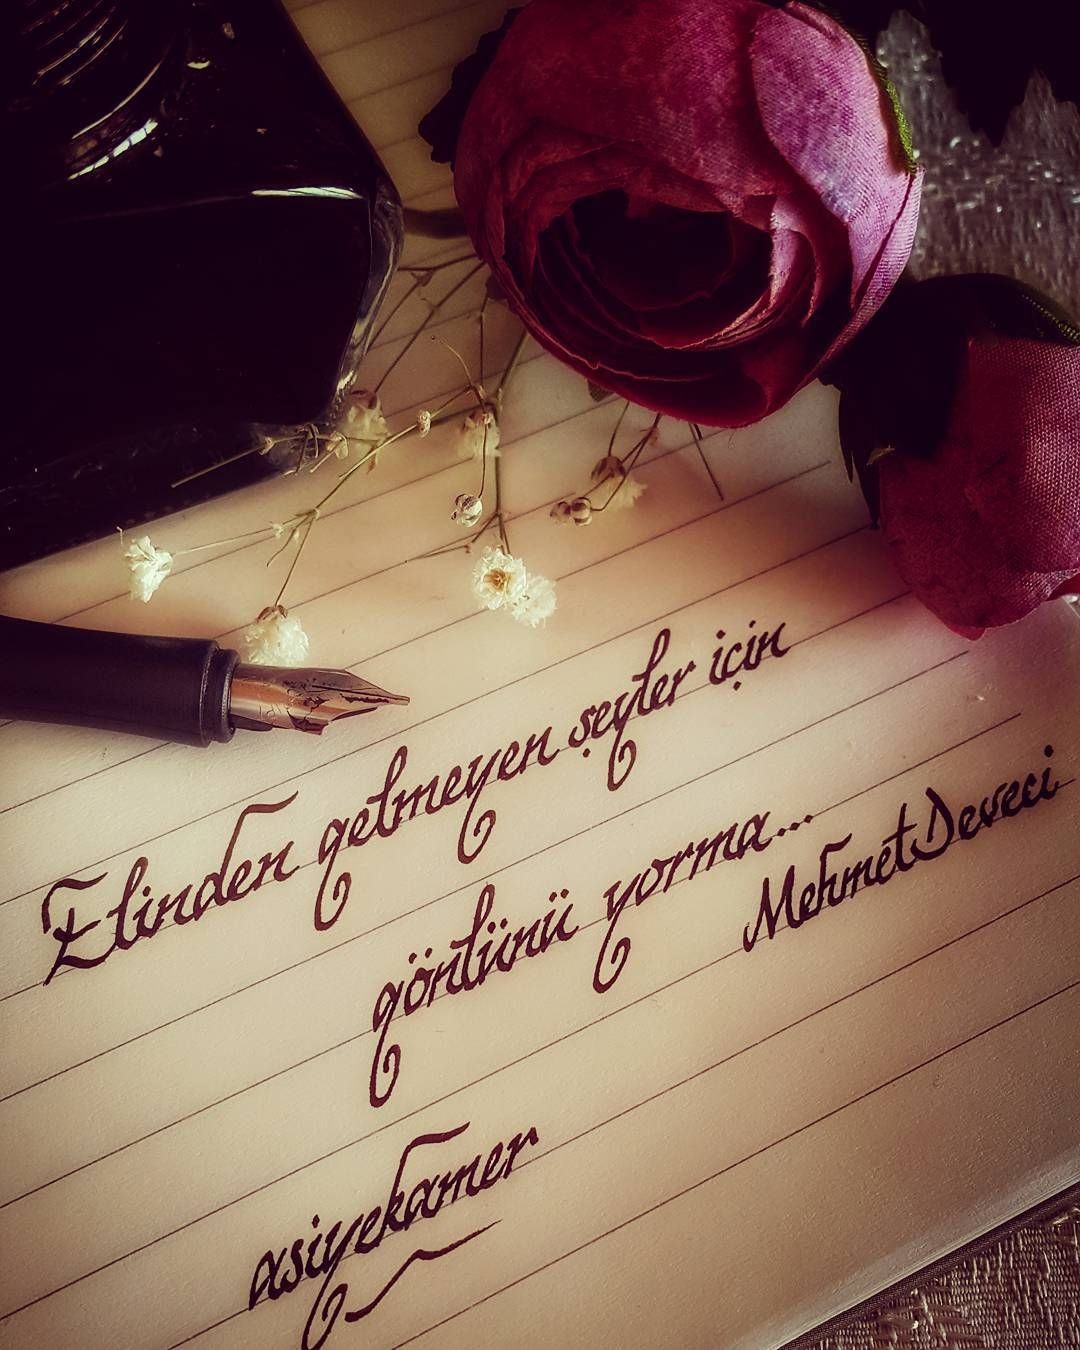 Elinden gelmeyen şeyler için
gönlünü yorma...
Mehmet Deveci
asiyekamer